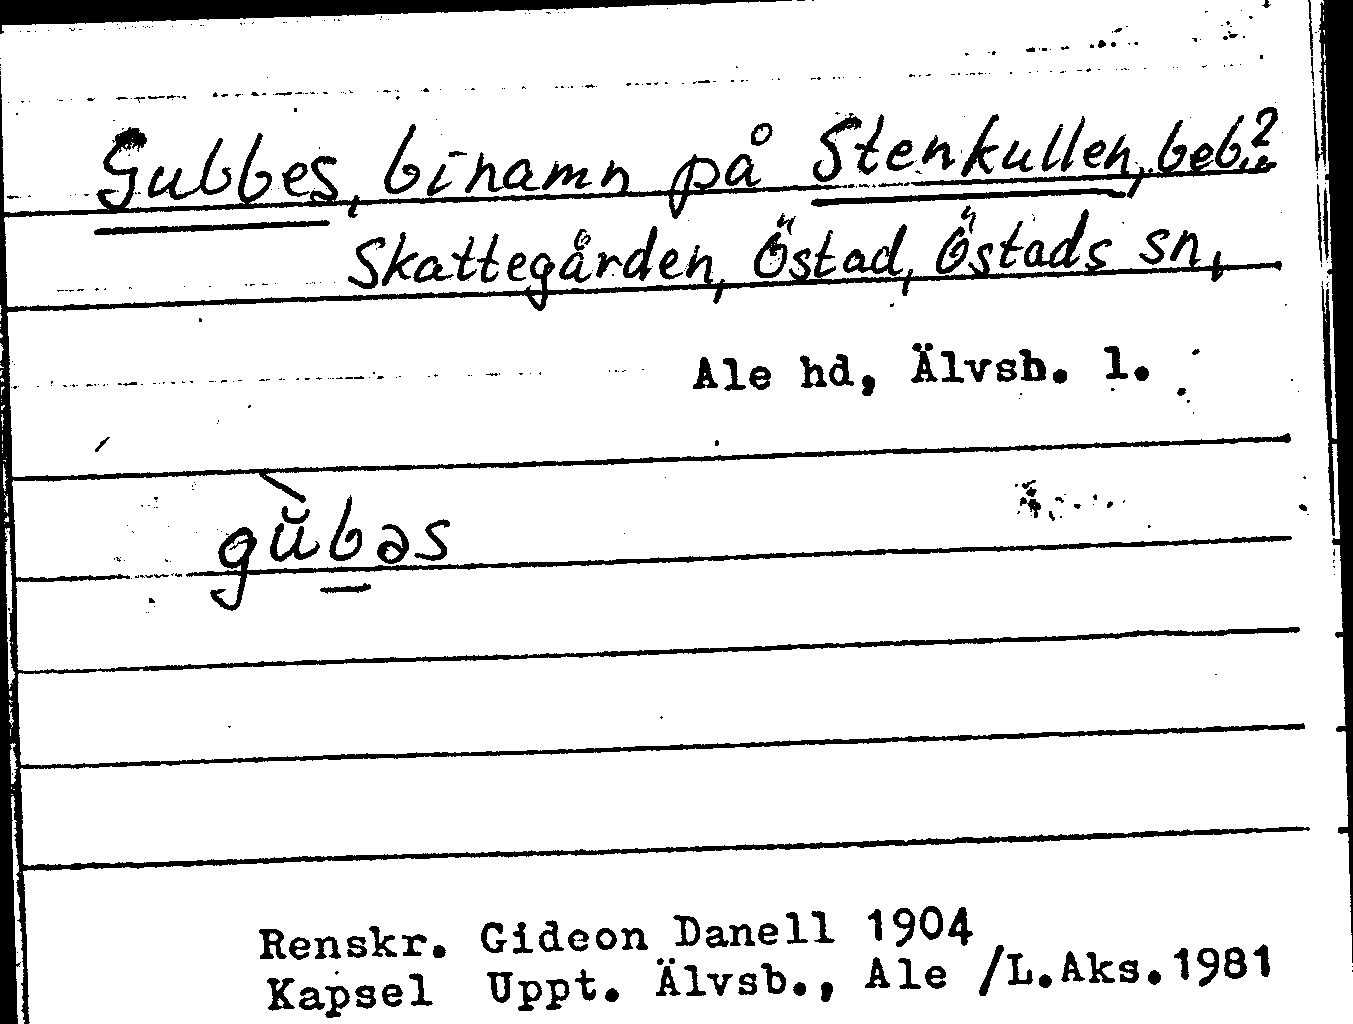 Gubbes, binamn på Stenkullen, beb.?
Skattegården, Östad, Östads sn,
Ale hd, Älvsb. l.
gŭ̀b̲əs
Renskr. Gideon Danell 1904
Kapsel Uppt. Älvsb., Ale /L.Aks.1981